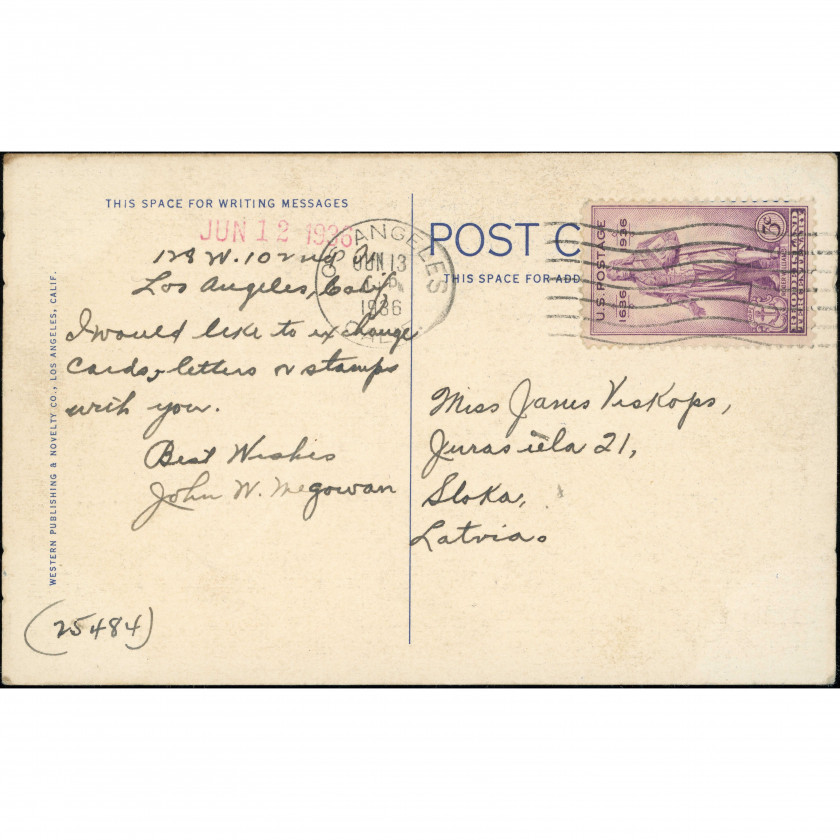 THIS SPACE FOR WRITING MESSAGES
JUN 12 1936
128 W. 102nd St
Los Angeles, Calif.
I would like to exchange
cards, letters or stamps
with you.
Best Wishes
John W. McGowan
(25484)
WESTERN PUBLISHING & NOVELTY CO., LOS ANGELES, CALIF.
LOS ANGELES
JUN 13
1936
CAL
POST C
THIS SPACE FOR ADD
U.S. POSTAGE
1636 1936
3c
RHODE ISLAND
TERCENTENARY
Miss Janis Viskops,
Juras iela 21,
Sloka,
Latvia.